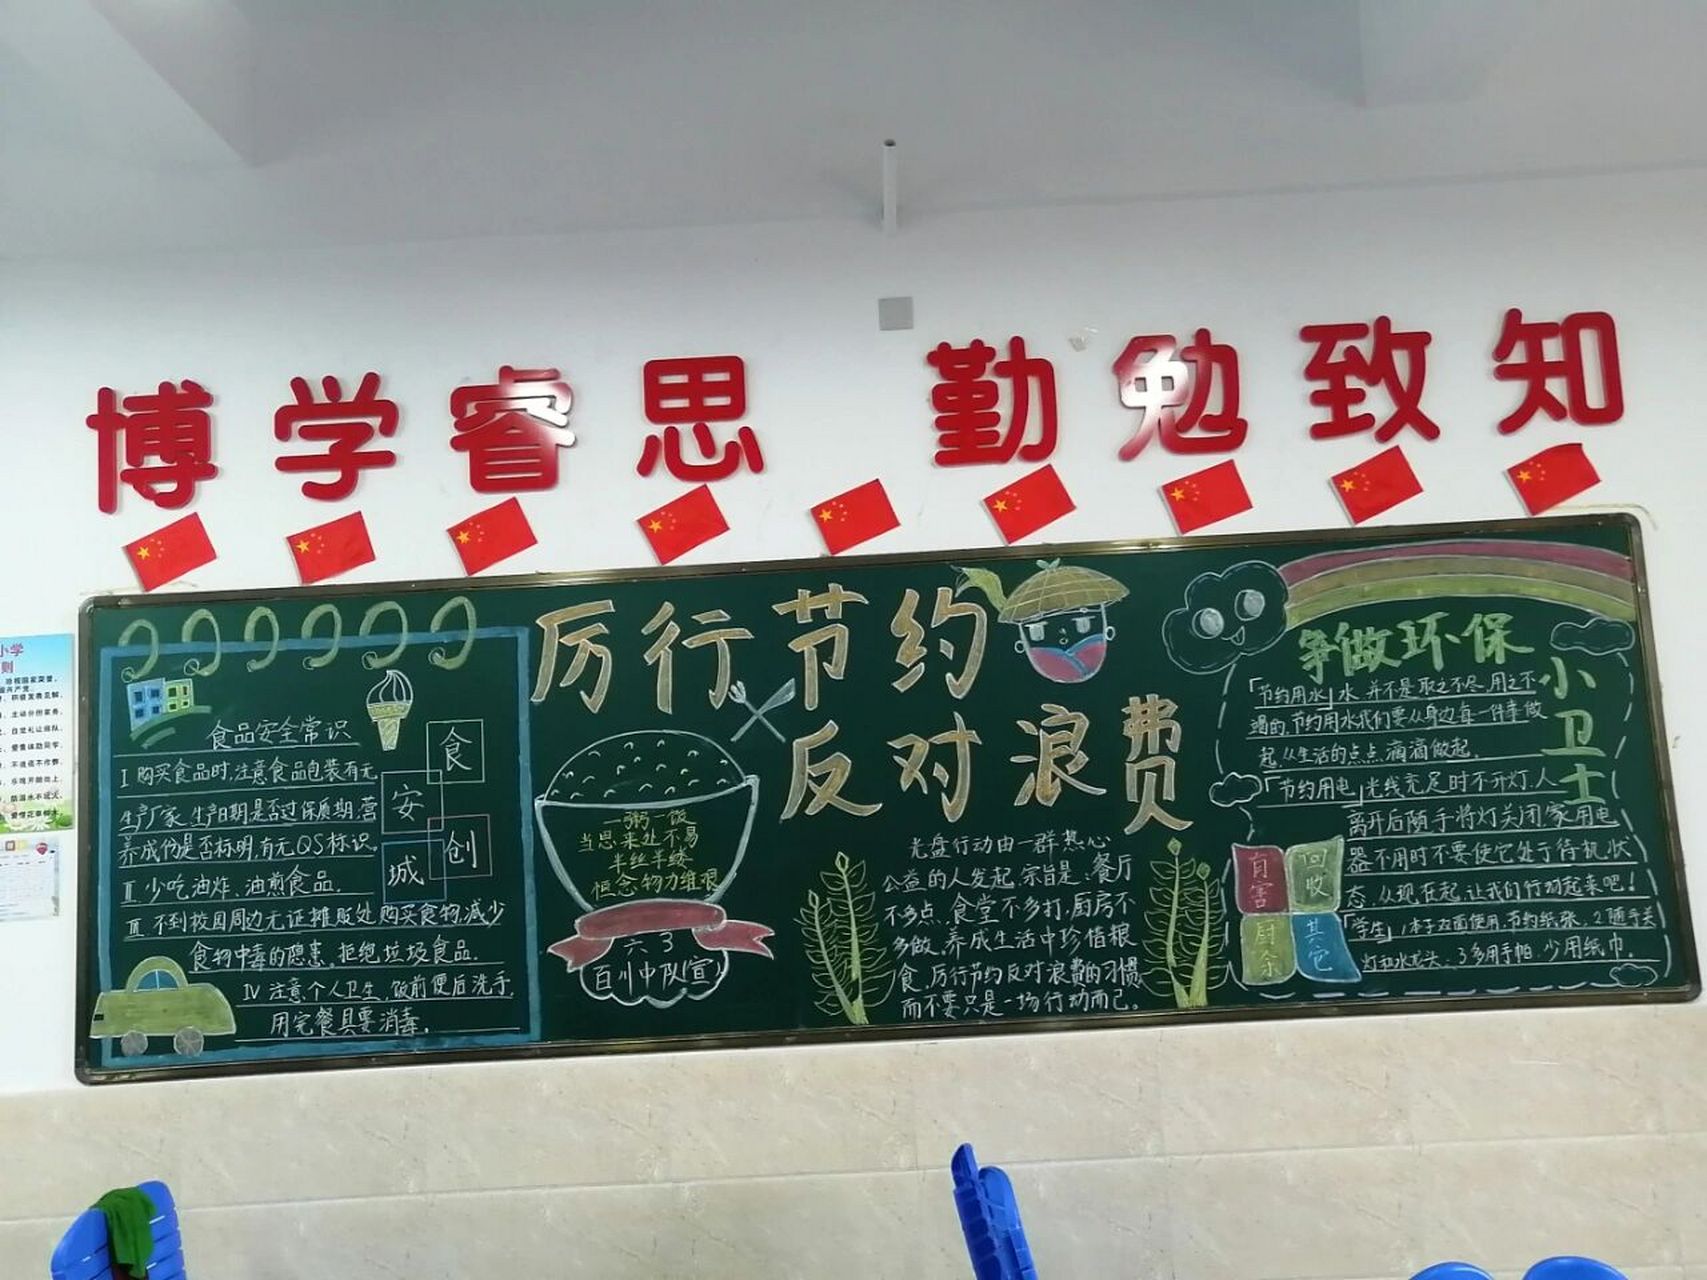 博学睿思 勤勉致知
小学
则
厉行节约
反对浪费
食品安全常识
I 购买食品时,注意食品包装有无
生产厂家,生产日期,是否过保质期,营
养成份是否标明,有无QS标识。
II 少吃油炸、油煎食品。
III 不到校园周边无证摊贩处购买食物,减少
食物中毒的隐患。拒绝垃圾食品。
IV 注意个人卫生,饭前便后洗手,
用完餐具要消毒。
食
安
创
城
一粥一饭
当思来处不易
半丝半缕
恒念物力维艰
六3
百川中队(宣)
光盘行动由一群热心
公益的人发起,宗旨是:餐厅
不多点、食堂不多打,厨房不
多做。养成生活中珍惜粮
食,厉行节约反对浪费的习惯
而不要只是一场行动而已。
争做环保
小卫士
「节约用水」水,并不是取之不尽,用之不
竭的,节约用水我们要从身边每一件事做
起,从生活的点点滴滴做起。
「节约用电」光线充足时不开灯,人
离开后随手将灯关闭,家用电
器不用时不要使它处于待机状
态。从现在起,让我们行动起来吧!
「学生」1本子双面使用,节约纸张。2随手关
灯和水龙头。3多用手帕,少用纸巾。
有害
回收
厨余
其它